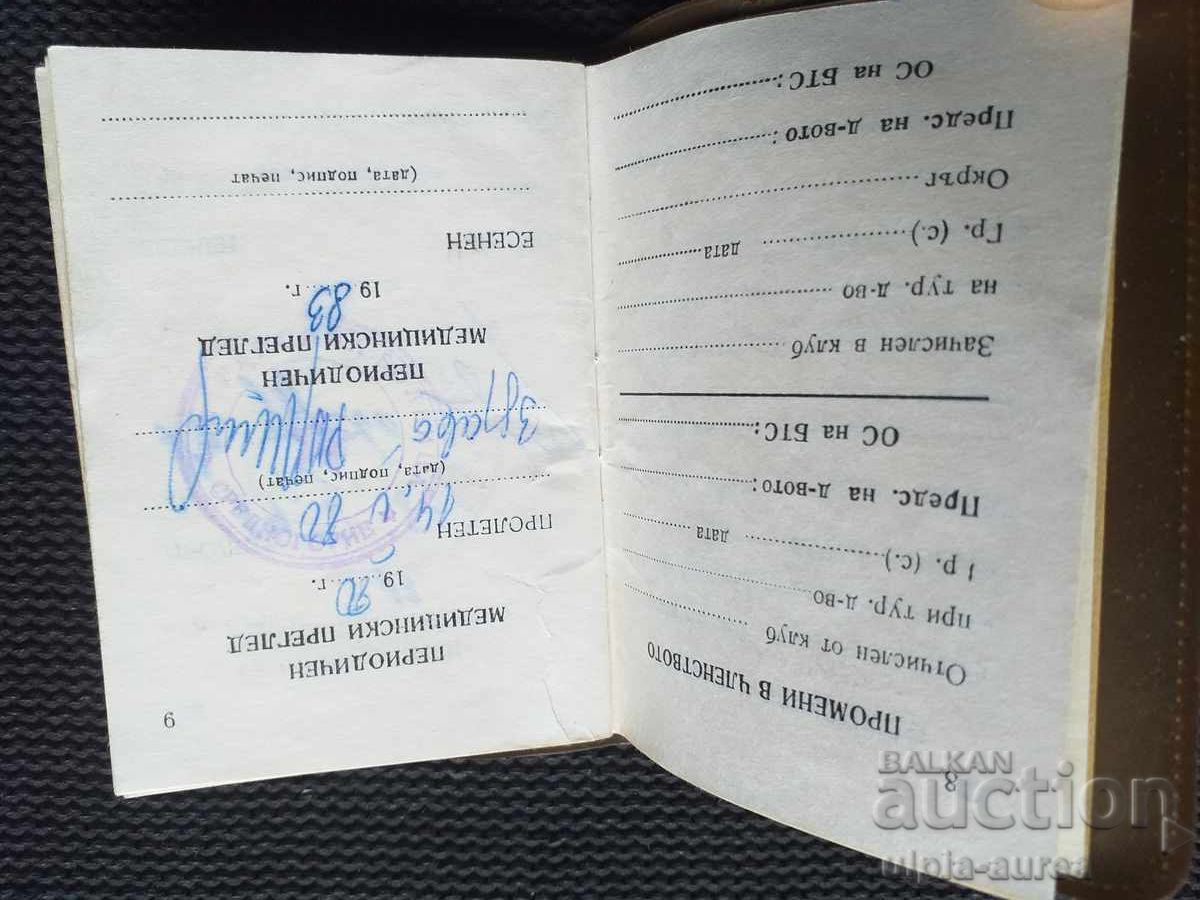 8
ПРОМЕНИ В ЧЛЕНСТВОТО
Отчислен от клуб
при тур. д-во
Гр. (с.) дата
Предс. на д-вото:
ОС на БТС:
Зачислен в клуб
на тур. д-во
Гр. (с.) дата
Окръг
Предс. на д-вото:
ОС на БТС:
9
ПЕРИОДИЧЕН
МЕДИЦИНСКИ ПРЕГЛЕД
1980 г.
ПРОЛЕТЕН
(дата, подпис, печат)
Здрава
ПЕРИОДИЧЕН
МЕДИЦИНСКИ ПРЕГЛЕД
1983 г.
ЕСЕНЕН
(дата, подпис, печат)
BALKAN
auction
ulpia-aurea